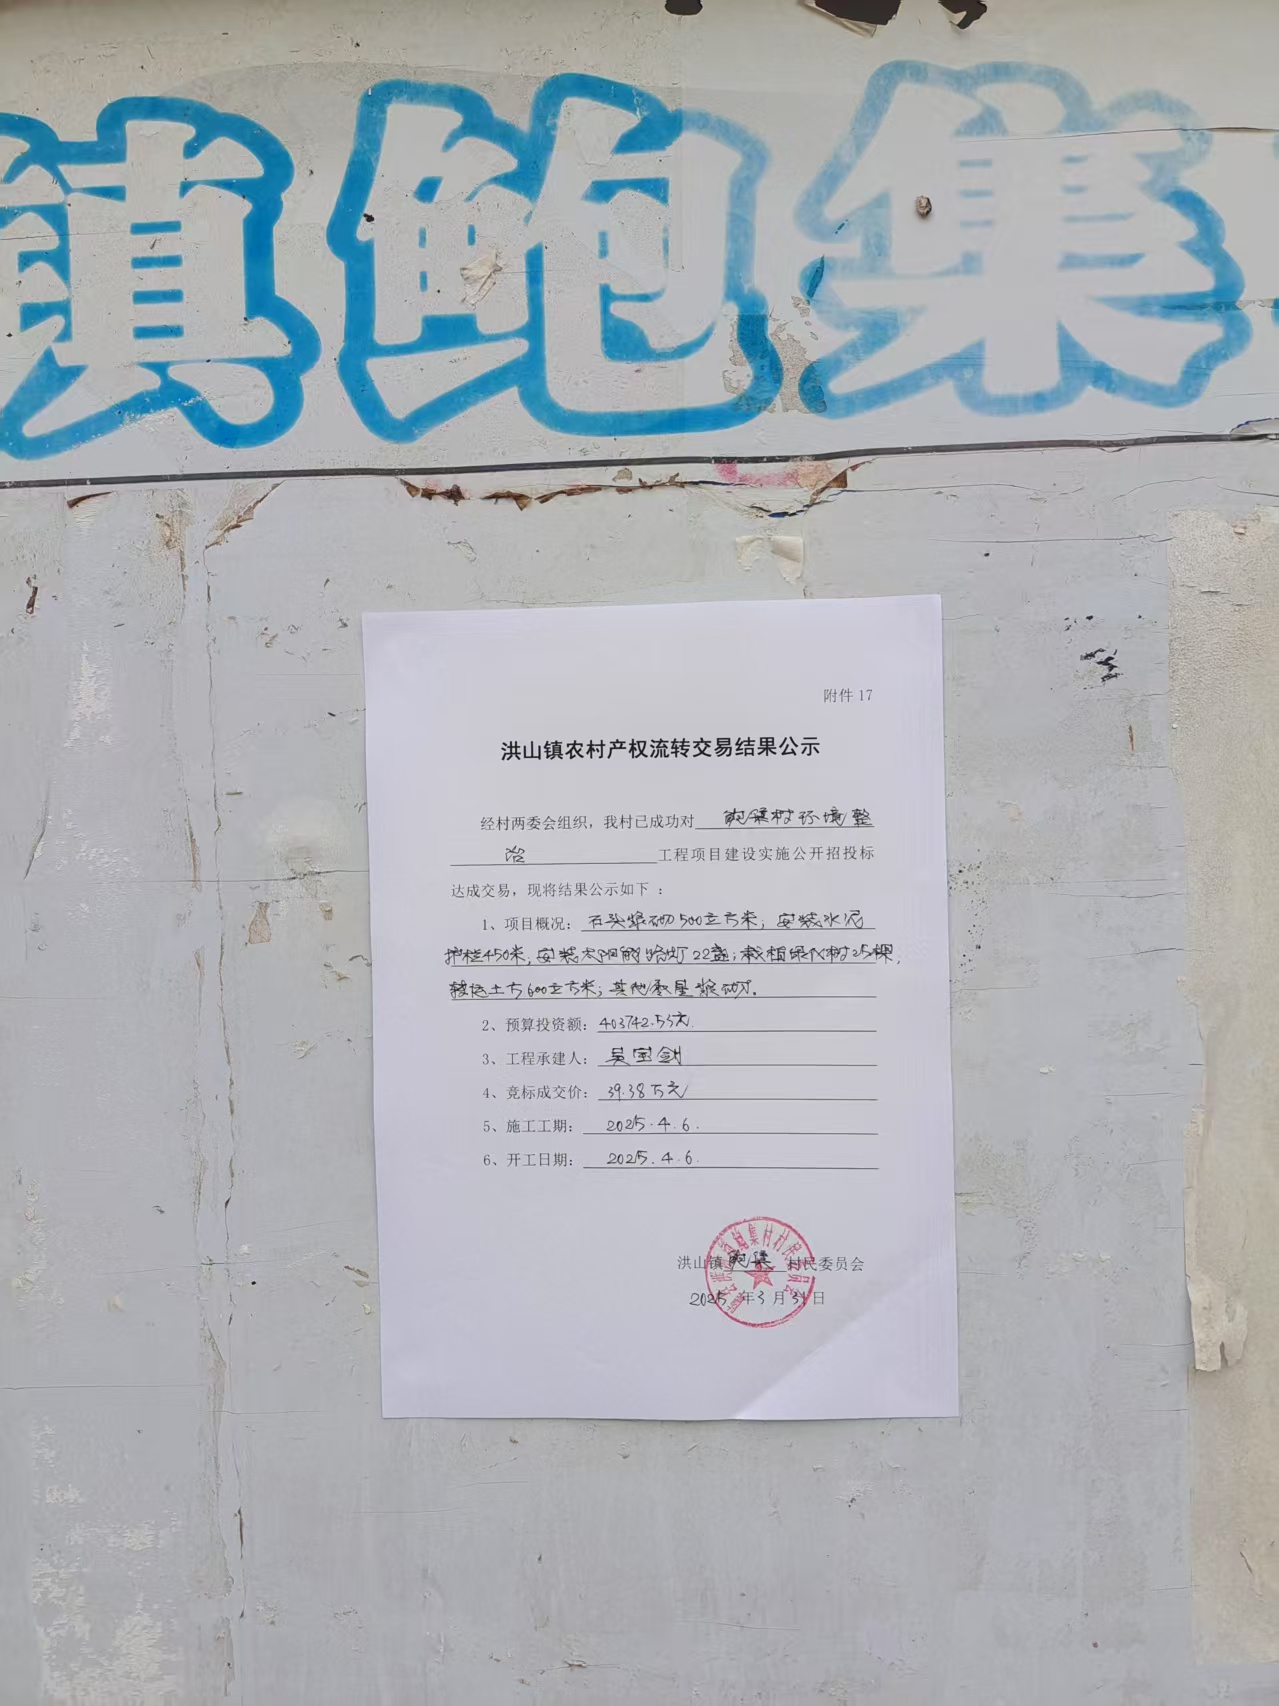 镇鲍集
附件 17
洪山镇农村产权流转交易结果公示
经村两委会组织，我村已成功对 鲍集村环境整
治 工程项目建设实施公开招投标
达成交易，现将结果公示如下：
1、项目概况：石头浆砌500立方米；安装水泥
护栏450米，安装太阳能路灯22盏；栽植绿化树25棵，
转运土方600立方米；其他
2、预算投资额：403742.55元
3、工程承建人：吴宝剑
4、竞标成交价：39.38万元
5、施工工期：2025.4.6.
6、开工日期：2025.4.6.
洪山镇鲍集 村民委员会
2025 年3月31日